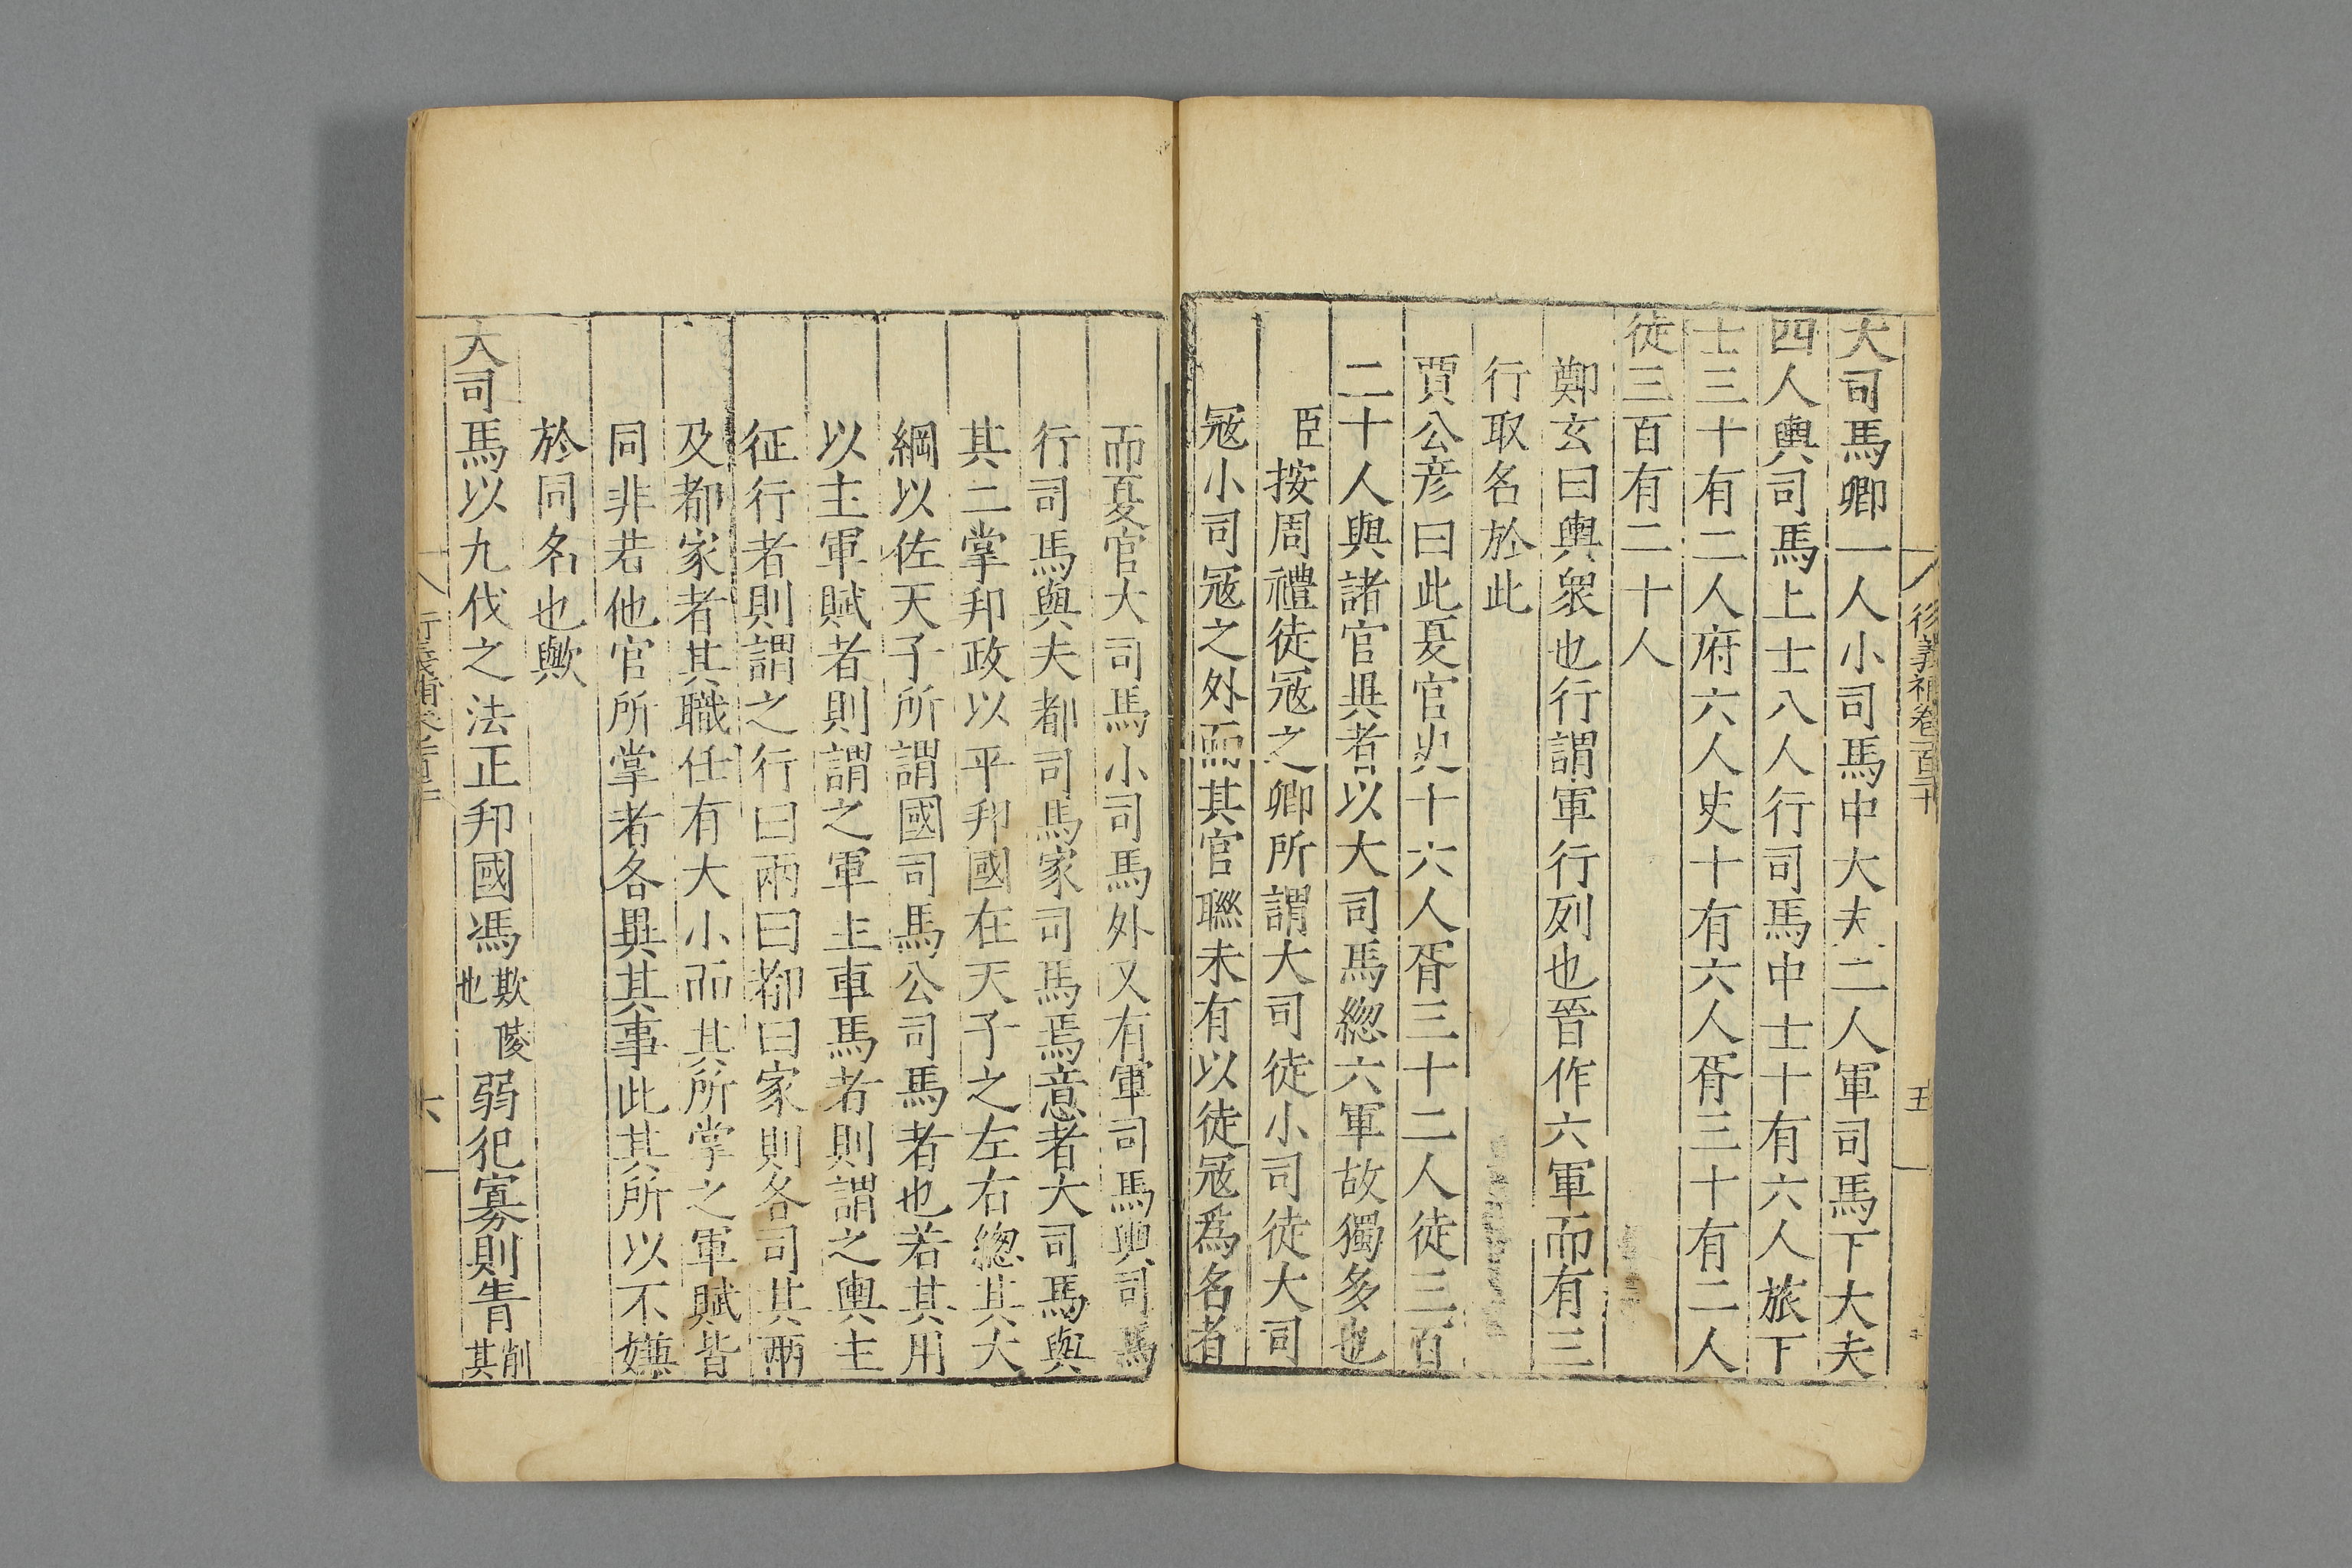 大司馬卿一人小司馬中大夫二人軍司馬下大夫
四人輿司馬上士八人行司馬中士十有六人旅下
士三十有二人府六人史十有六人胥三十有二人
徒三百有二十人
鄭玄曰輿衆也行謂軍行列也晉作六軍而有三
行取名於此
賈公彦曰此夏官史十六人胥三十二人徒三百
二十人與諸官異者以大司馬緫六軍故獨多也
臣按周禮徒冦之卿所謂大司徒小司徒大司
冦小司冦之外而其官聮未有以徒冦爲名者
而夏官大司馬小司馬外又有軍司馬輿司馬
行司馬與夫都司馬家司馬焉意者大司馬與
其二掌邦政以平邦國在天子之左右緫其大
綱以佐天子所謂國司馬公司馬者也若其用
以主軍賦者則謂之軍主車馬者則謂之輿主
征行者則謂之行曰兩曰都曰家則各司其兩
及都家者其職任有大小而其所掌之軍賦皆
同非若他官所掌者各異其事此其所以不嫌
於同名也歟
大司馬以九伐之法正邦國馮欺也陵弱犯寡則眚削其
五
六